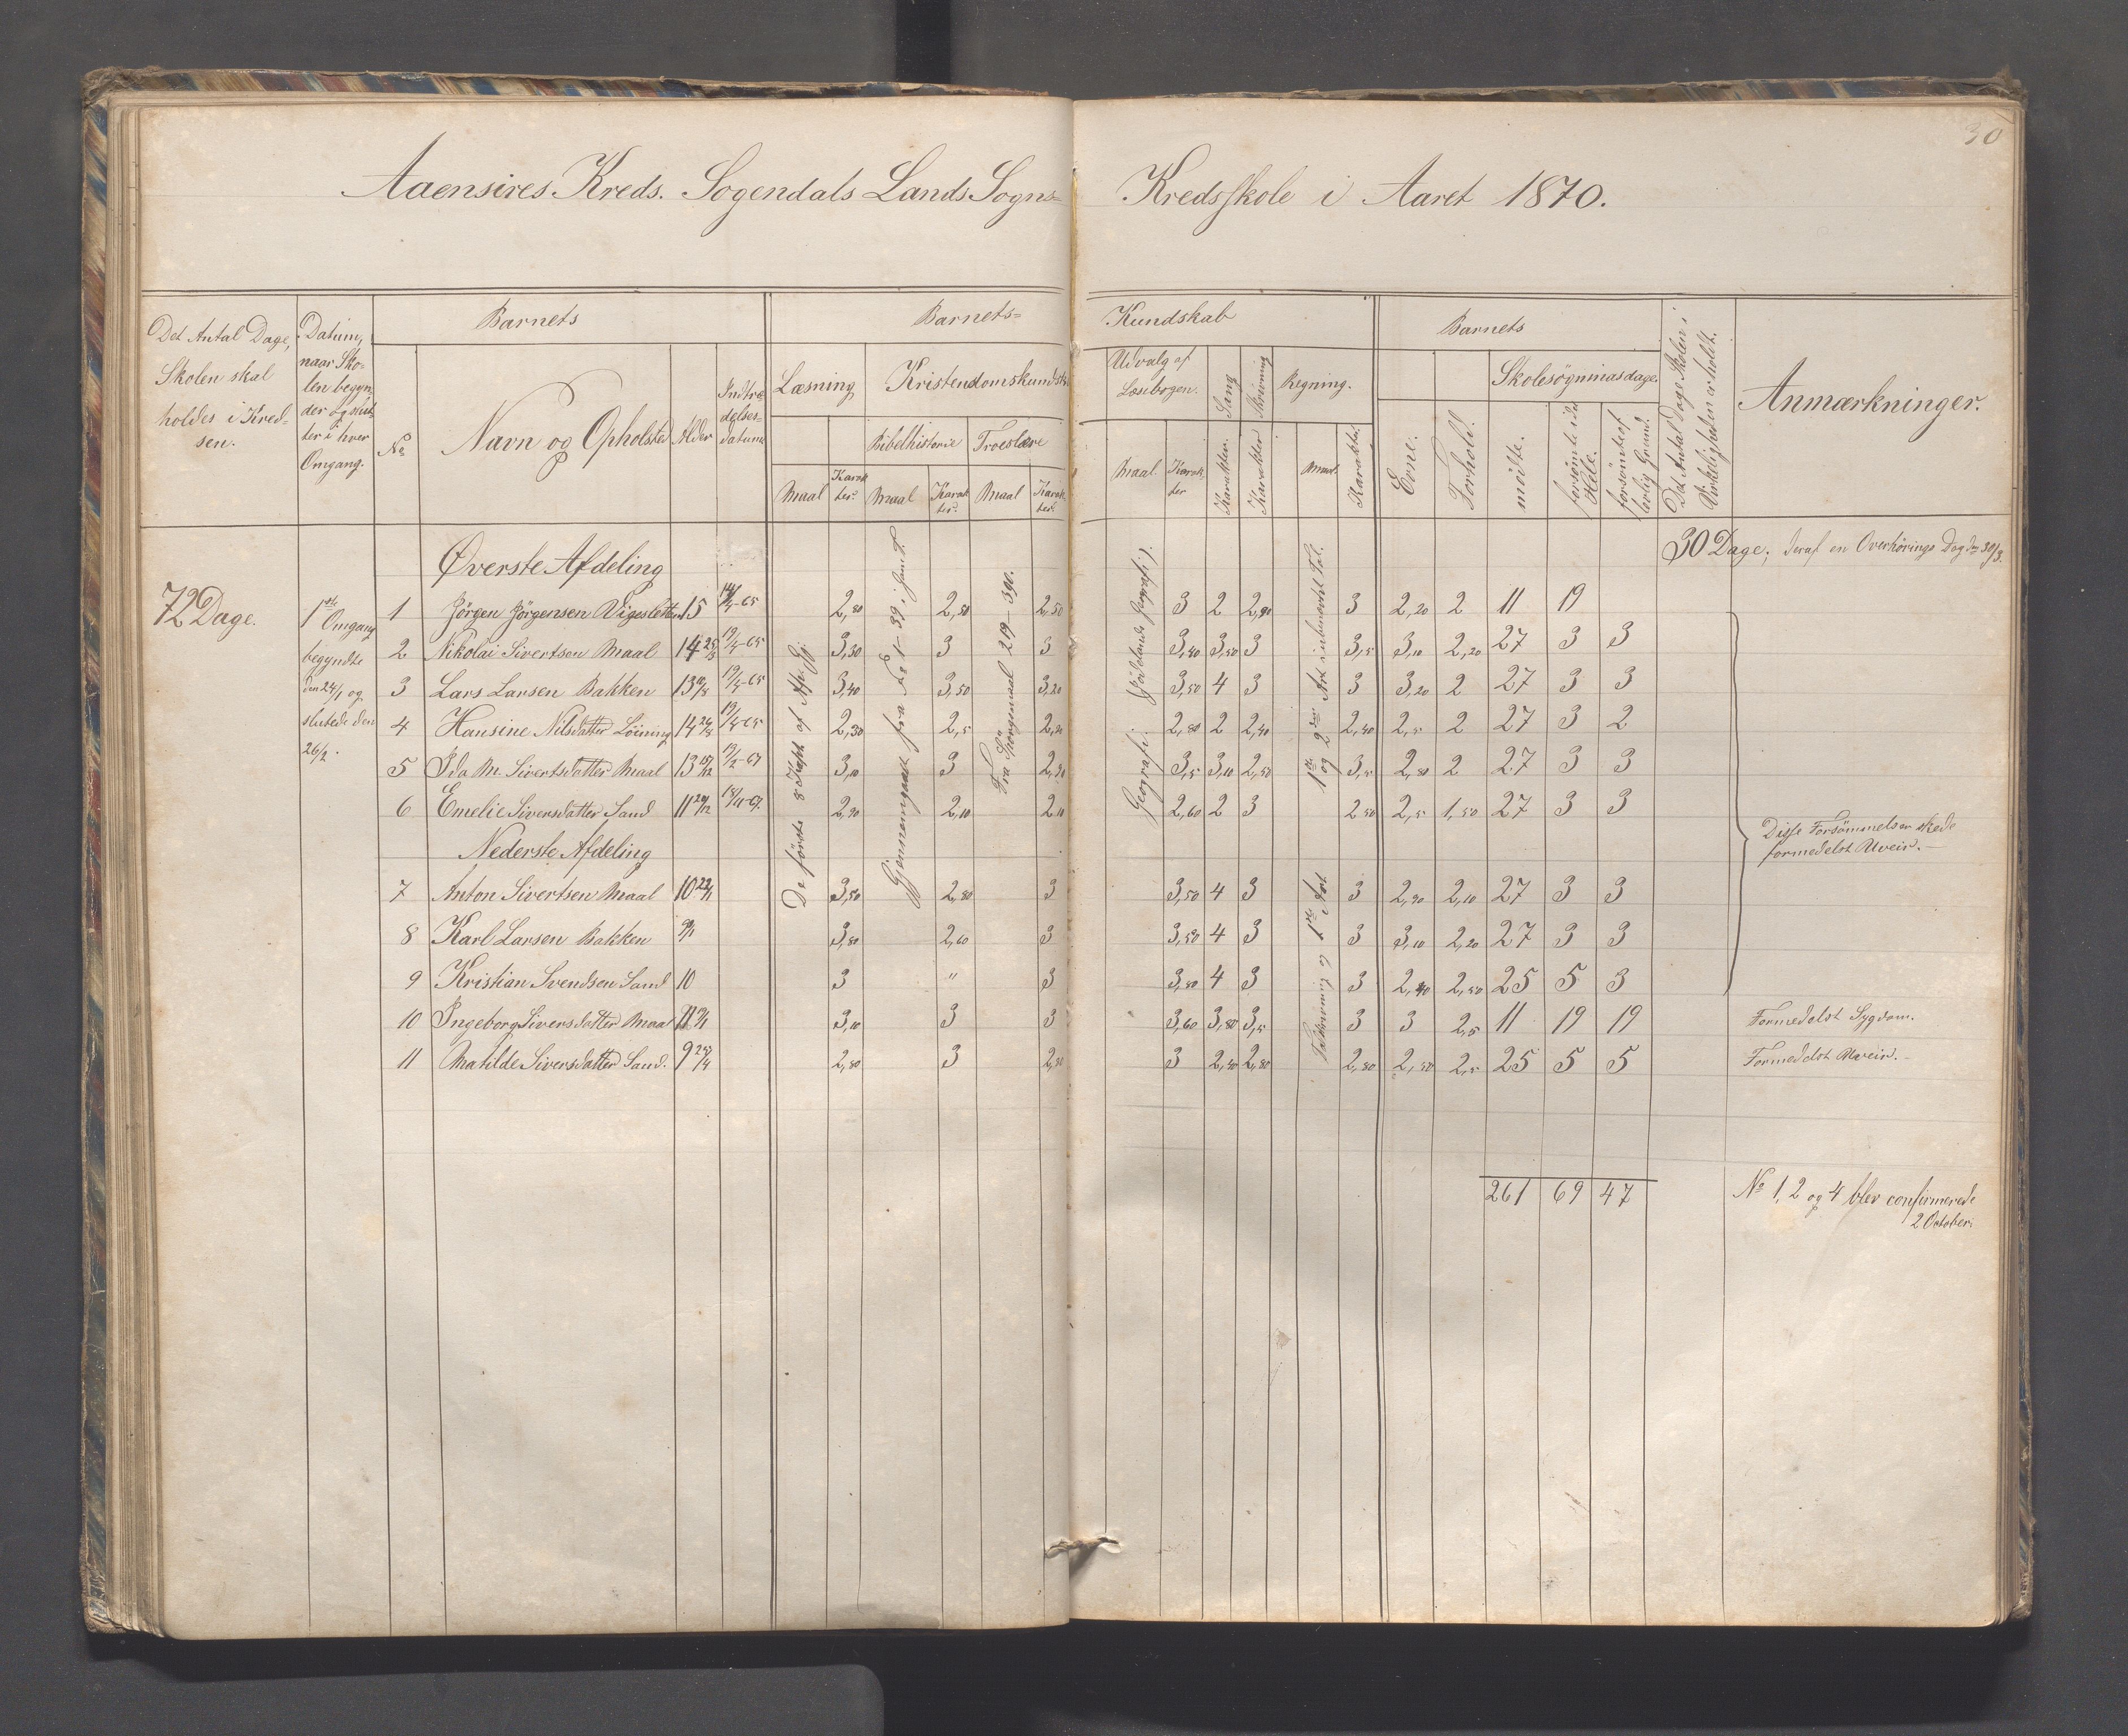 30
Aaensires Kreds. Sogendals Lands Sogns= Kredsskole i Aaret 1870.
Det Antal Dage, Skolen skal holdes i Kredsen.
Datum, naar Skolen begynder og slutter i hver Omgang.
Barnets
No
Navn og Opholsted
Alder
Indtrædelses-datum
Barnets= Kundskab
Læsning
Maal
Karakter.
Kristendomskundsk
Bibelhistorie
Maal
Karakter.
Troeslære
Maal
Karakter.
Udvalg af Læsebogen.
Maal.
Karakter
Sang
Karakter.
Skrivning
Karakter
Regning.
Maal.
Karakter.
Barnets
Evne.
Forhold.
Skolesøgningsdage
mödte.
forsømte i det Hele.
forsømte af lovlig Grund.
Det Antal Dage Skolen i Virkeligheden er holdt.
Anmærkninger.
72 Dage.
1ste Omgang
begyndte
den 24/1 og
sluttede den
26/2.
30 Dage, deraf en Overhörings Dag den 30/3.
Øverste Afdeling
De förste 8 Kapt. af Ap. Gj.
Gjennemgaaet fra § 1 - 39 i Jamt.
Fra Spörgsmaal 219 - 390.
Geografi:
1ste og 2den Art i ubenævnt Tal.
1 Jörgen Jörgensen Vigesletten 15 19/4-65 2,80 2,50 2,50 3 2 2,90 3 2,20 2 11 19
2 Nikolai Sivertsen Maal 14 25/3 19/4-65 3,30 3 3 3,40 3,50 3 3,5 3,10 2,20 27 3 3
3 Lars Larsen Bakken 13 19/4-65 3,40 3,50 3,20 3,50 4 3 3 3,20 2 27 3 3
4 Hansine Nilsdatter Löining 14 19/4-65 2,30 2,5 2,80 2 2,40 2,40 2,5 2 27 3 2
5 Ida M. Sivertsdatter Maal 13 3,10 3 2,90 3,5 3,10 2,50 3,5 2,80 2 27 3 3
6 Emelie Siversdatter Sand 11 2,90 2,10 2,10 2,60 2 3 2,50 2,5 1,50 27 3 3
Disse Forsömmelser skede
formedelst Uveir. –
Nederste Afdeling
1ste Art
7 Anton Sivertsen Maal 10 3,50 2,80 3 3,50 4 3 3 2,90 2,10 27 3 3
8 Karl Larsen Bakken 3,80 2,60 3 3,50 4 3 3 3,10 2,20 27 3 3
9 Kristian Svendsen Sand 10 3 " 3 3,80 4 3 3 2,40 2,50 25 5 3
10 Ingeborg Siversdatter Maal 11 3,10 3 3 3,60 3,80 3,5 3 3 2,5 11 19 19 Formedelst Sygdom.
11 Matilde Siversdatter Sand. 9 2,80 3 2,90 3 2,40 2,80 2,80 2,50 2,5 25 5 5 Formedelst Uveir. –
261 69 47
No 1, 2 og 4 blev confirmerede
2 October.